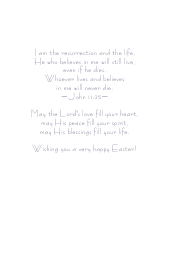 I am the resurrection and the life.
He who believes in me will still live,
even if he dies.
Whoever lives and believes
in me will never die.
— John 11:25 —
May the Lord's love fill your heart,
may His peace fill your spirit,
may His blessings fill your life.
Wishing you a very happy Easter!